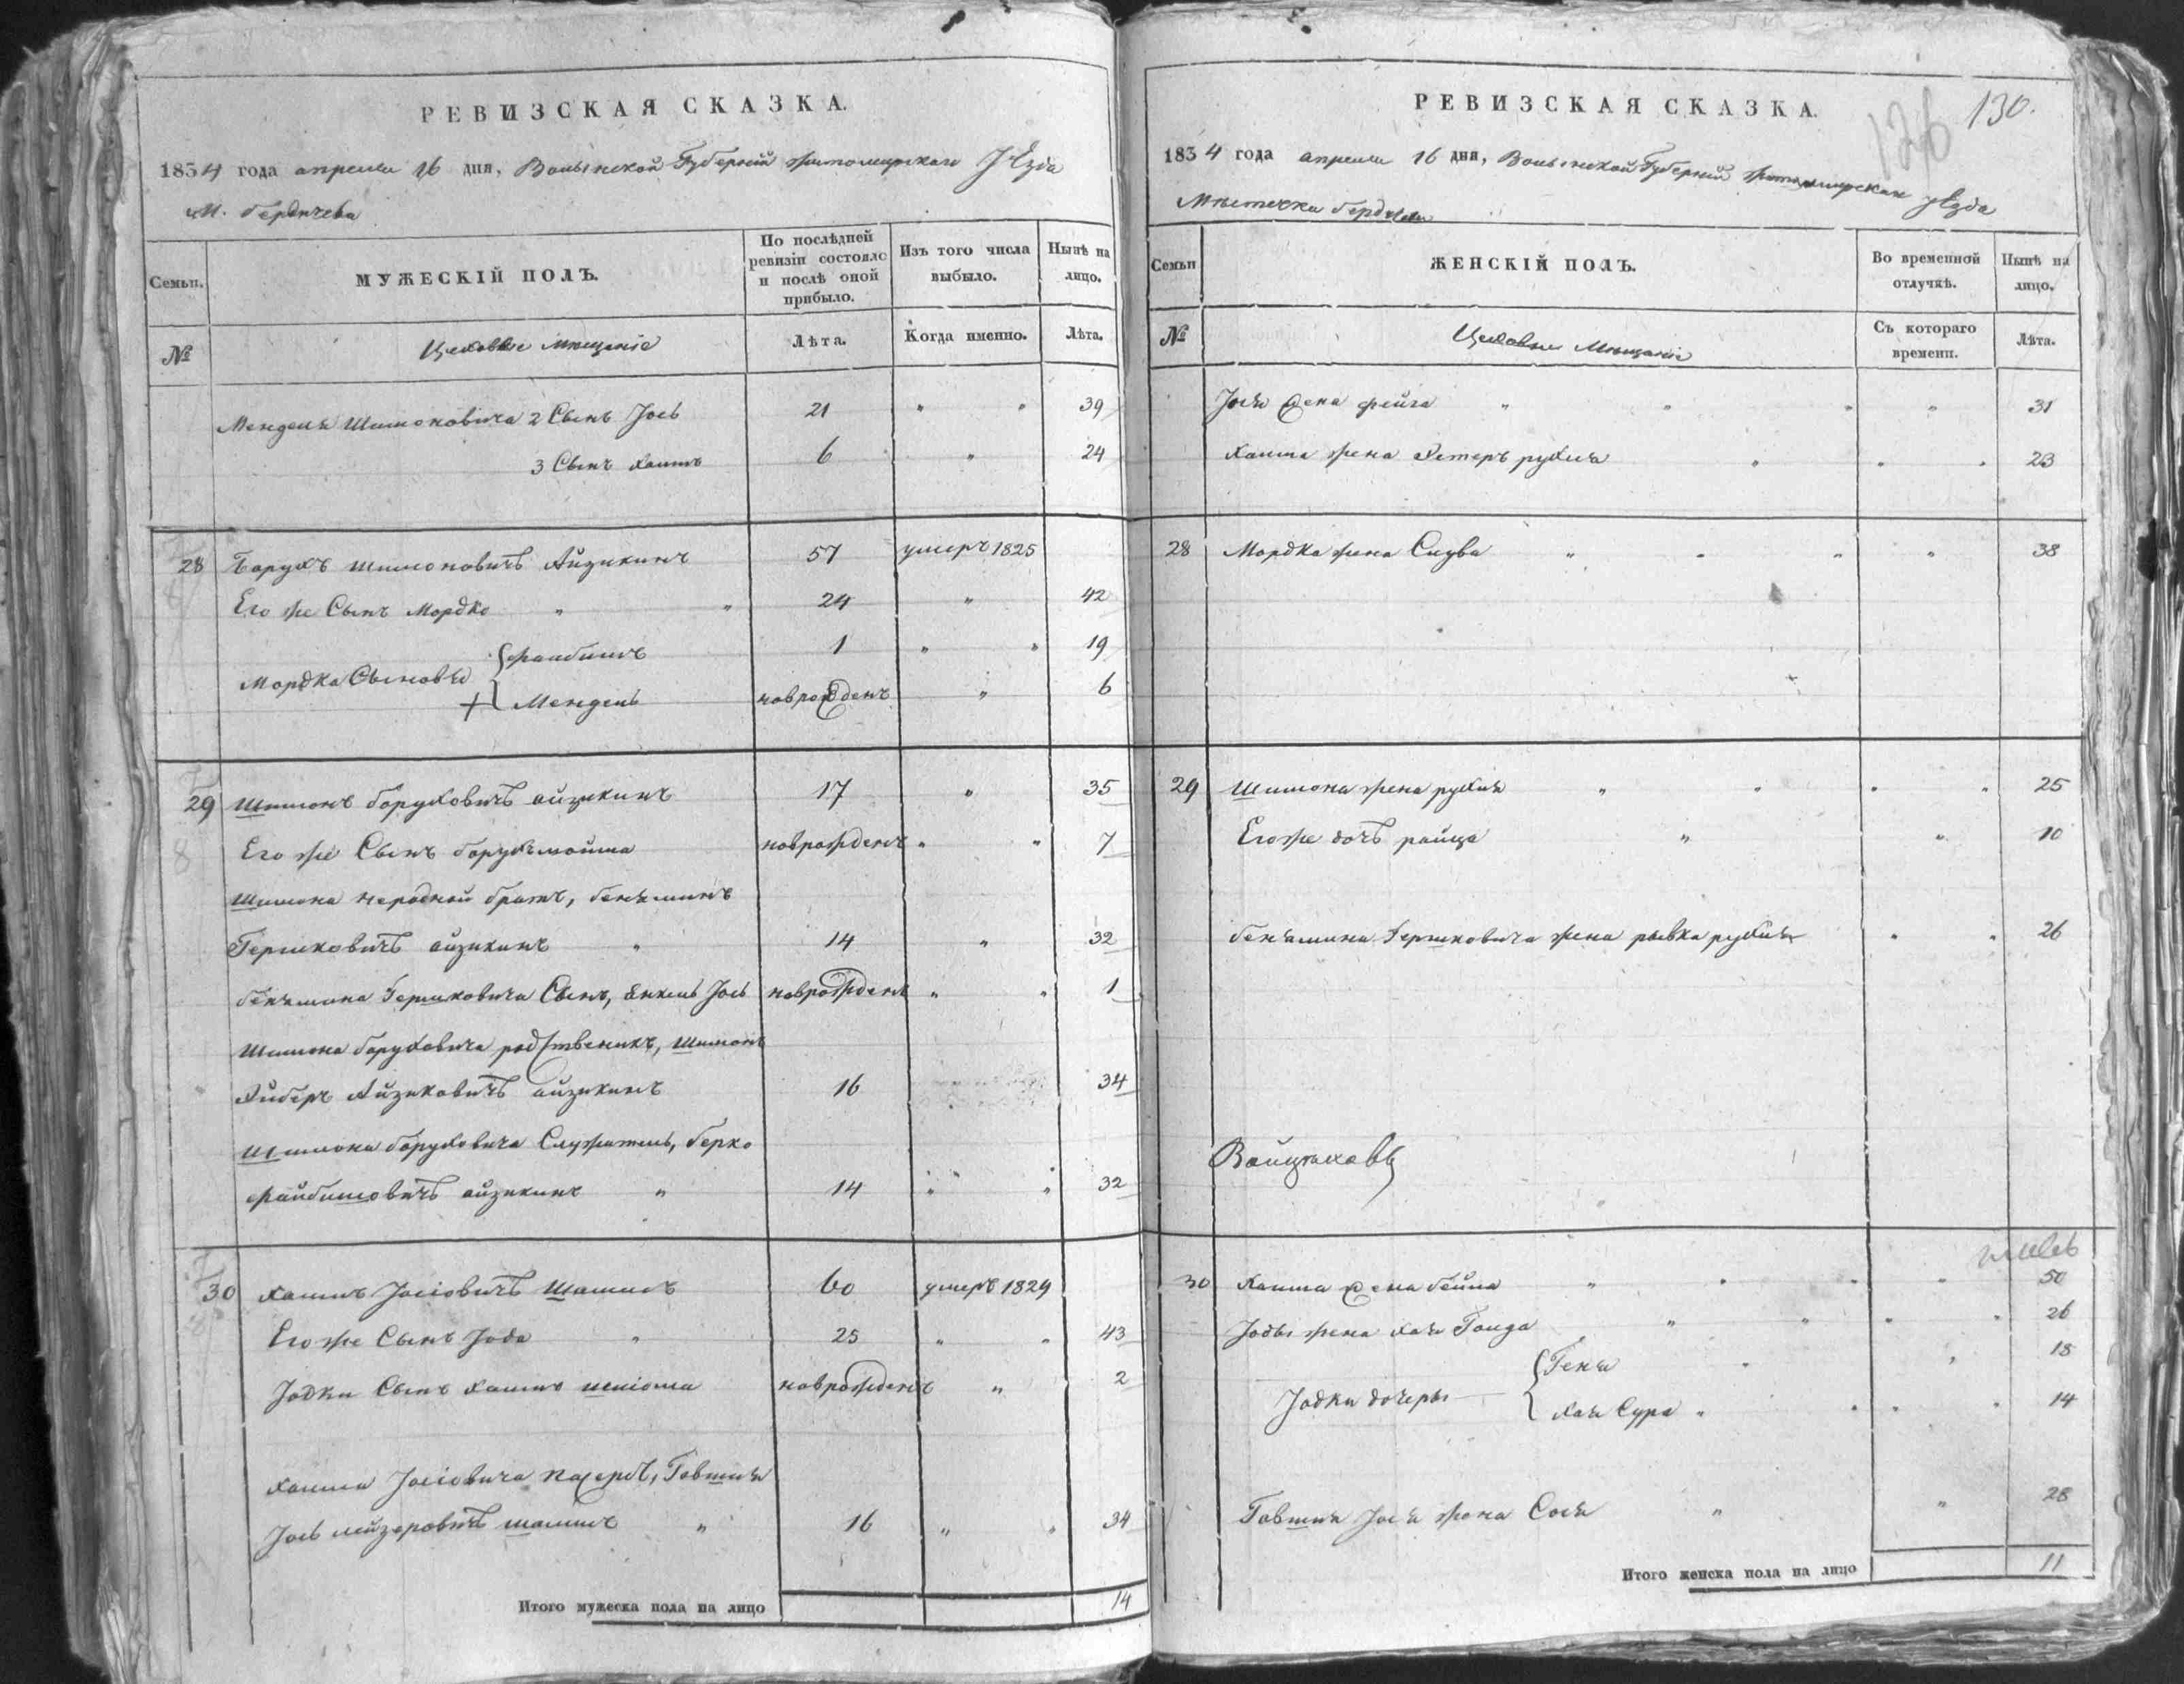 РЕВИЗСКАЯ СКАЗКА.
1834 года апреля 16 дня, Волынской Губернiи житомирскаго уѣзда
М. бердичева
Семьи.
МУЖЕСКIЙ ПОЛЪ.
По послѣдней ревизiи состояло и послѣ оной прибыло.
Изъ того числа выбыло.
Нынѣ на лицо.
№
Цеховые мещанiе
Лѣта.
Когда именно.
Лѣта.
Менделя Шимоновича 2 Сынъ Јось 21 " " 39
3 Сынъ хаимъ 6 " 24
28 Барухъ шимоновичъ Айзикинъ 57 умеръ 1825
Его же Сынъ Мордко " " 24 " 42
Мордка Сыновья { файбишъ 1 " " 19
+ Мендель новрожденъ " 6
29 Шимонъ боруховичъ айзикинъ 17 " 35
Его же Сынъ борухъ мойша новрожденъ " " 7
Шимона неродной братъ, беньяминъ
Гершковичъ айзикинъ " 14 " 32
беньямина Гершковича Сынъ, Янкель Јось новрожденъ " " 1
Шимона боруховича родственикъ, Шимонъ
Айзиковичъ айзикинъ 16 34
Шимона боруховича Служитель, берко
файбишовичъ айзикинъ " 14 " " 32
30 хаимъ Јосiовичъ Шамисъ 60 умеръ 1829
Его же Сынъ Јода " 25 " " 43
Јодки Сынъ хаимъ новрожденъ " 2
хаима Јосiовича пасербъ, Говшия
Јось лейзеровичъ " 16 " " 34
Итого мужеска пола на лицо 14
РЕВИЗСКАЯ СКАЗКА.
126
130.
1834 года апреля 16 дня, Волынской Губернiи житомирскаго уѣзда
Мѣстечка бердичева
Семьи
ЖЕНСКIЙ ПОЛЪ.
Во временной отлучкѣ.
Нынѣ на лицо.
№
Цеховые мещанiе
Съ котораго времени.
Лѣта.
Јося жена фейга " " " " 31
хаима жена Эстеръ рухля " " " 23
28 Мордка жена Слува " " " " 38
29 Шимона жена рухля " " " " 25
Его же дочъ райца " " 10
беньямина Гершковича жена рывка рухля " " 26
30 хаима жена бейла " " " " 50
Јоды жена хая Голда " " " " 26
Јодки дочеры { Геня " " 18
хая Сура " " " " 14
Говшия Јося жена Сося " " 28
Итого женска пола на лицо 11